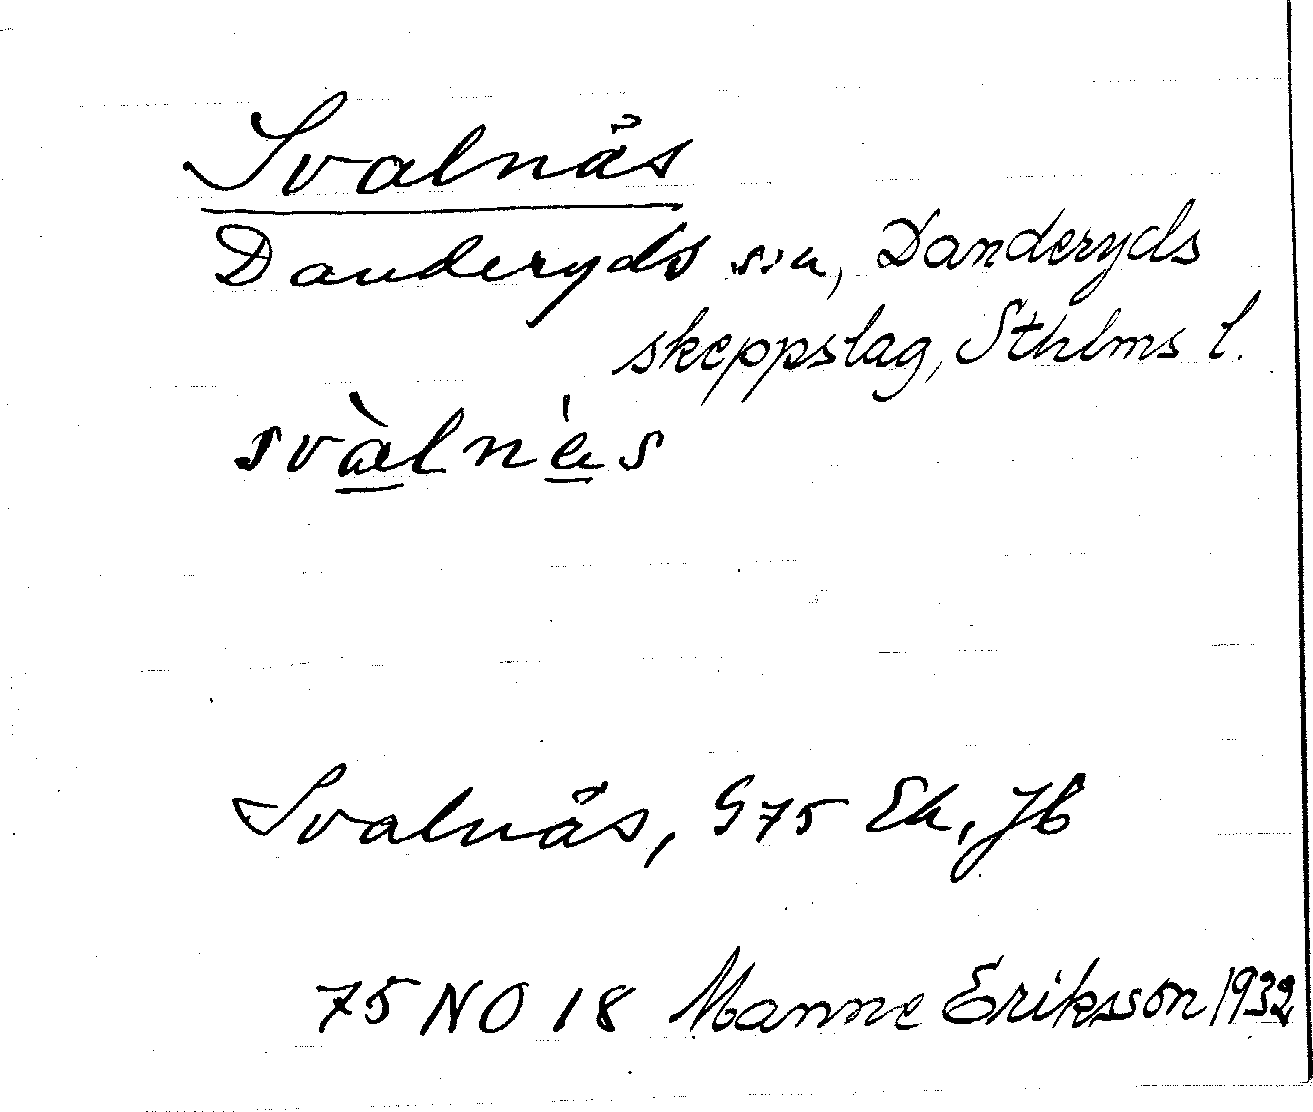 Svalnäs
Danderyds sn, Danderyds
skeppslag, Sthlms l.
svàlnás
Svalnäs, G75 Ek, Jb
75 NO 18 Manne Eriksson 1932